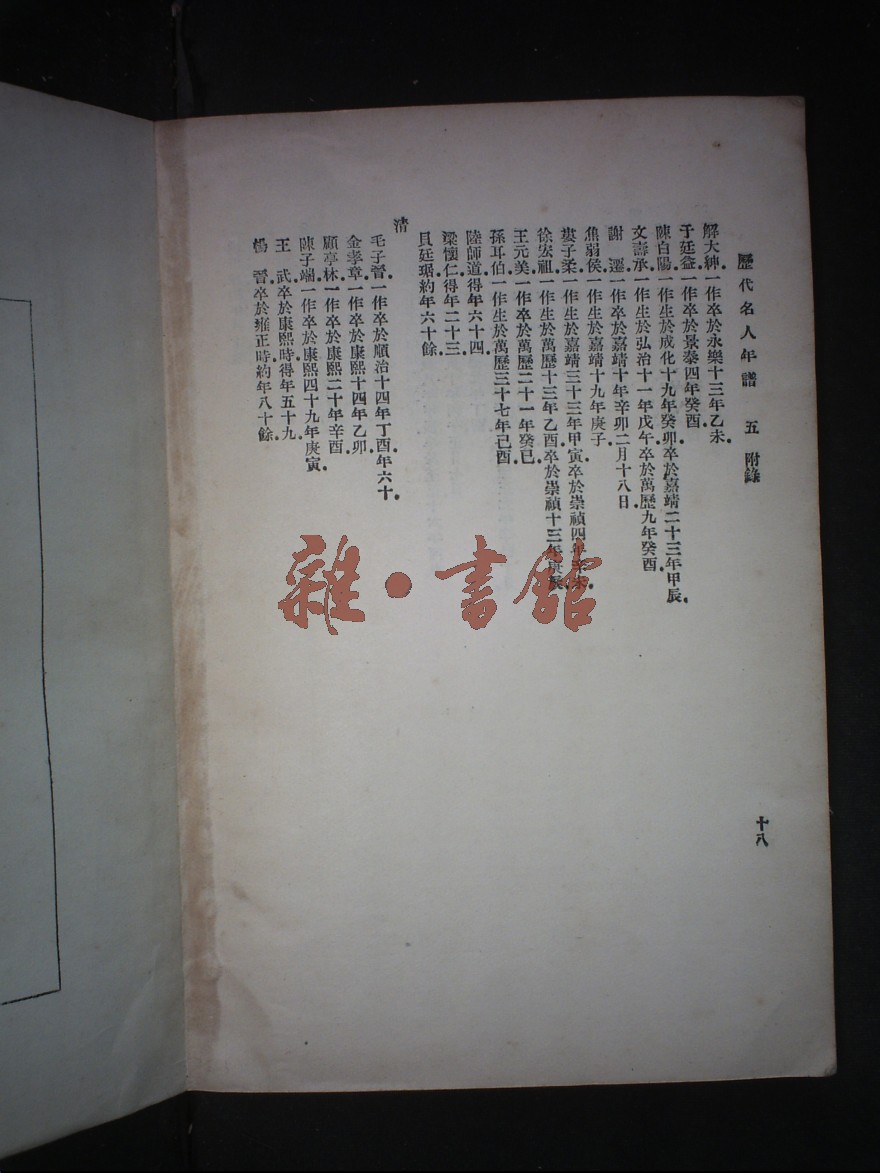 歷代名人年譜 五 附錄
解大紳一作卒於永樂十三年乙未.
于廷益一作卒於景泰四年癸酉.
陳白陽一作生於成化十九年癸卯卒於嘉靖二十三年甲辰.
文壽承一作生於弘治十一年戊午卒於萬歷九年癸酉.
謝 遷一作卒於嘉靖十年辛卯二月十八日
焦弱侯一作生於嘉靖十九年庚子.
婁子柔一作生於嘉靖三十三年甲寅卒於崇禎四年辛未.
徐宏祖一作生於萬歷十三年乙酉卒於崇禎十三年庚辰.
王元美一作卒於萬歷二十一年癸巳.
孫耳伯一作生於萬歷三十七年己酉.
陸師道得年六十四.
梁懷仁得年二十三.
貝廷琚約年六十餘.
清
毛子晉一作卒於順治十四年丁酉年六十.
金孝章一作卒於康熙十四年乙卯.
顧亭林一作卒於康熙二十年辛酉.
陳子端一作卒於康熙四十九年庚寅.
王 武卒於康熙時得年五十九.
楊 晉卒於雍正時約年八十餘.
十八
雜·書館